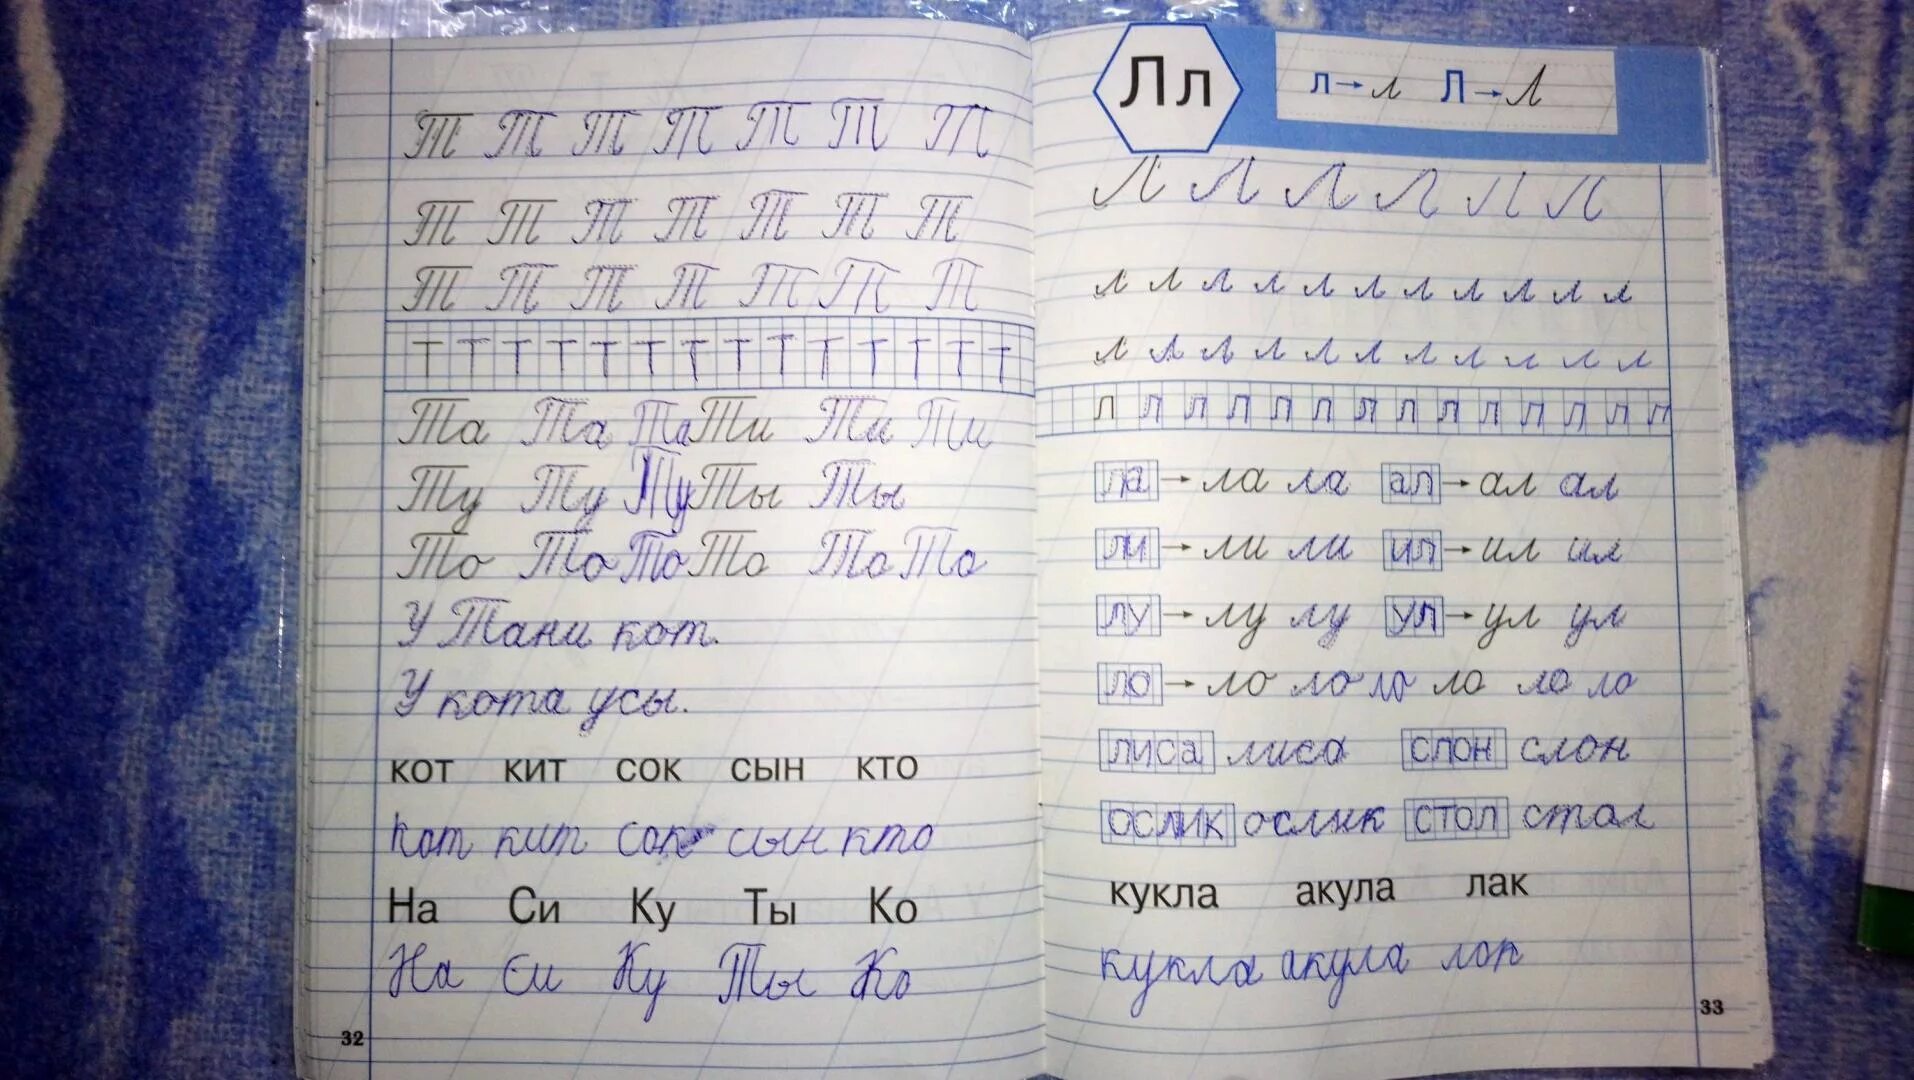 Т Т Т Т Т Т Т
Т Т Т Т Т Т Т
Т Т Т Т Т Т Т
Т Т Т Т Т Т Т Т Т Т Т Т Т Т
Та Та Та Ти Ти Ти
Ту Ту Ту Ты Ты
То То То То То То
У Тани кот.
У кота усы.
кот кит сок сын кто
кот кит сок сын кто
На Си Ку Ты Ко
На Си Ку Ты Ко
32
Лл л→л Л→Л
Л Л Л Л Л Л
л л л л л л л л л л л
л л л л л л л л л л л
л л л л л л л л л л л л л л
ла → ла ла ал → ал ал
ли → ли ли ил → ил ил
лу → лу лу ул → ул ул
ло → ло ло ло ло ло ло
лиса лиса слон слон
ослик ослик стол стал
кукла акула лак
кукла акула лак
33